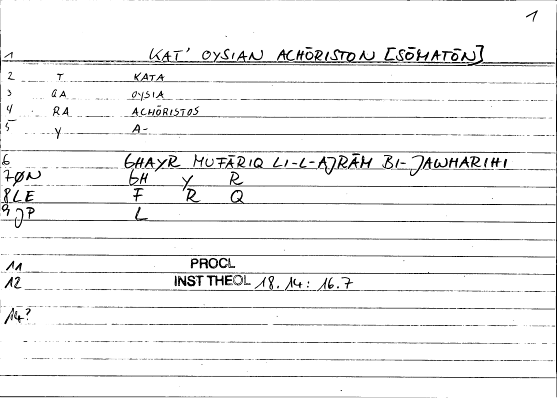 1
1 KAT' OYSIAN ACHŌRISTON [SŌMATŌN]
2 T KATA
3 GA OYSIA
4 RA ACHŌRISTOS
5 Y A-
6 GHAYR MUFĀRIQ LI-L-AJRĀM BI-JAWHARIHI
7 ØN GH Y R
8 LE F R Q
9 JP L
11 PROCL
12 INST THEOL 18.14: 16.7
14?